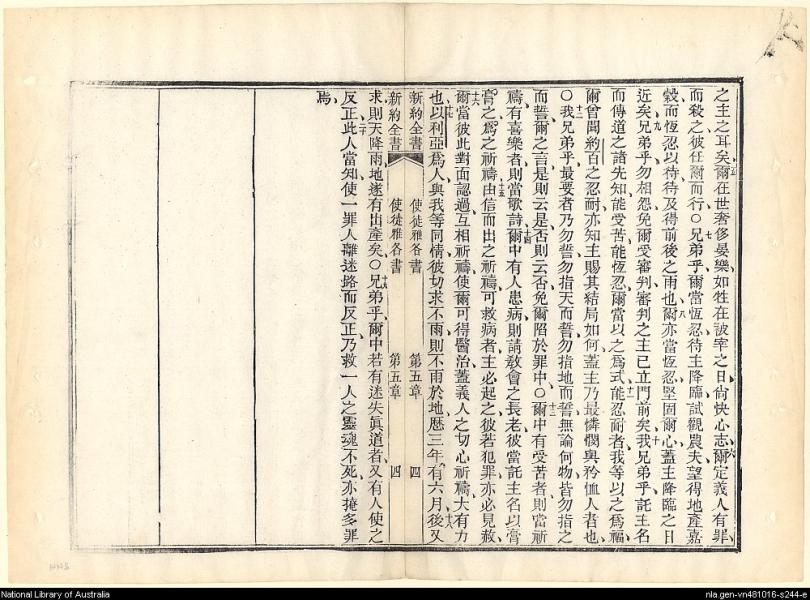 之主之耳矣爾在世奢侈晏樂如牲在誠宰之日尙快心志爾定義人有罪
而殺之彼任爾而行○兄弟乎爾當恆忍待主降臨試觀農夫望得地產嘉
穀而恆忍以待待及得前後之雨也爾亦當恆忍堅固爾心蓋主降臨之日
近矣兄弟乎勿相怨免爾受審判審判之主已立門前矣我兄弟乎託主名
而傳道之諸先知能受苦能恆忍爾當以之爲式能忍耐者我等以之爲福
爾曾聞約百之忍耐亦知主賜其結局如何蓋主乃最憐憫與矜恤人者也
○我兄弟乎最要者乃勿誓勿指天而誓勿指地而誓無論何物皆勿指之
而誓爾之言是則云是否則云否免爾陷於罪中○爾中有受苦者則當祈
禱有喜樂者則當歌詩爾中有人患病則請敎會之長老彼當託主名以膏
膏之爲之祈禱由信而出之祈禱可救病者主必起之彼若犯罪亦必見赦
爾當彼此對面認過互相祈禱使爾可得醫治蓋義人之切心祈禱大有力
也以利亞爲人與我等同情彼切求不雨則不雨於地歷三年有六月後又
新約全書 使徒雅各書 第五章 四
新約全書 使徒雅各書 第五章 四
求則天降雨地遂有出產矣○兄弟乎爾中若有迷失眞道者又有人使之
反正此人當知使一罪人離迷路而反正乃救一人之靈魂不死亦掩多罪
焉
National Library of Australia
nla.gen-vn481016-s244-e